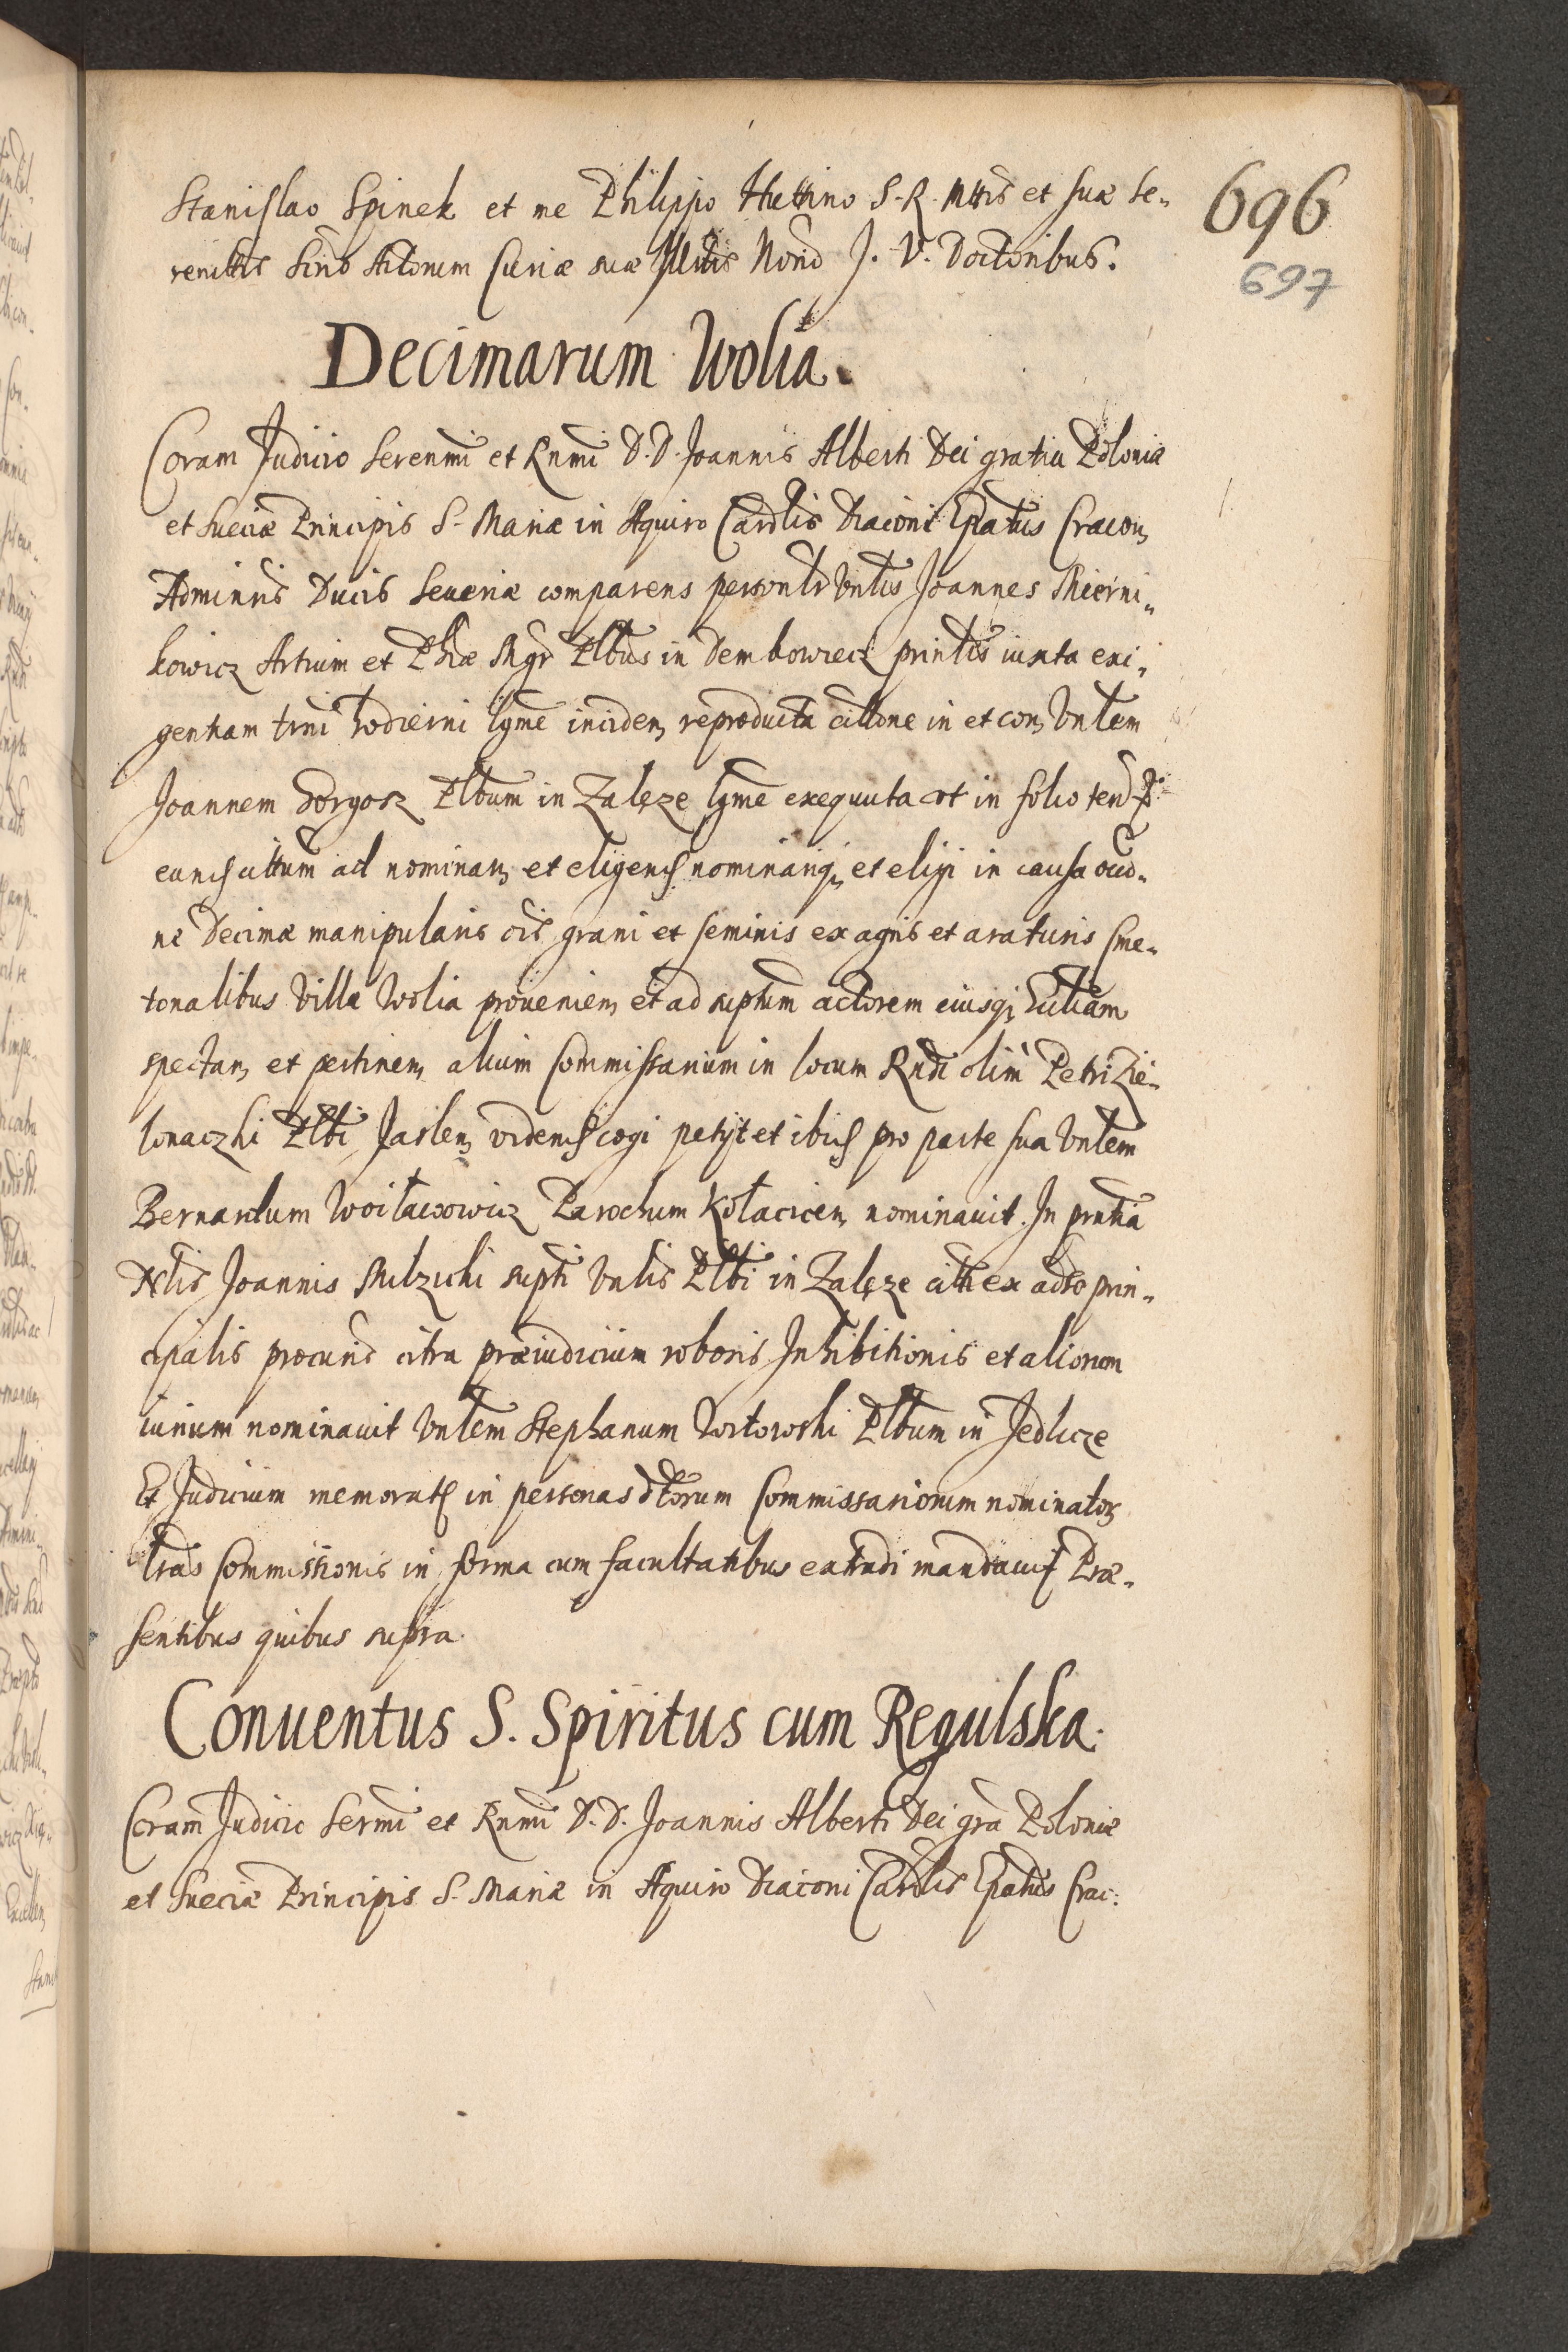 696
697
Stanislao Spinek et me Philippo Huttino S. R. Mttis et suæ Se-
renittis Actorum Curiæ suæ Illris J. V. Doctoribus.
Decimarum Wolia.
Coram Judicio Serenmi et Rnmi D. D. Joannis Alberti Dei gratia Poloniæ
et Sueciæ Principis S. Mariæ in Aquiro Cardlis Diaconi Epatus Cracou
Adminris Ducis Seueriæ comparens personlr Vnlis Joannes Mierni-
kowicz Artium et Phiæ Mgr Plbus in Dembowiecz prinlis iuxta exi-
gentiam trni hodierni lgme inciden reproducta cittone in et con Vnlem
Joannem Gorgosz Plbum in Zalęze lgme exequuta ut in folio ten
eund cittum ad nominan et eligend nominariq et eligi in causa
næ Decimæ manipularis ois grani et seminis ex agris et araturis Cme-
tonalibus Villæ Wolia prouenien et ad suptum actorem eiusq Ecliam
spectan et pertinen alium Commissarium in locum Rndi olim Petri Zie-
lonaczki Plbi Jaslen cogi petijt et ibid pro parte sua Vnlem
Bernardum Woitaxowicz Parochum Kołacicen nominauit. In prntia
Nlis Joannis supti Vnlis Plbi in Zalęze citti ex adso prin-
cipalis procuris citra præiudicium roboris Inhibitionis et aliorum
iurium nominauit Vnlem Stephanum Plbum in Jedlicze
Et Judicium memorat in personas dtorum Commissariorum nominator
lras Commissionis in forma cum facultatibus extradi mandauit Præ-
sentibus quibus supra.
Conuentus S. Spiritus cum Regulska.
Coram Judicio Sermi et Rnmi D. D. Joannis Alberti Dei gra Poloniæ
et Sueciæ Principis S. Mariæ in Aquiro Diaconi Cardlis Epatus Crac: